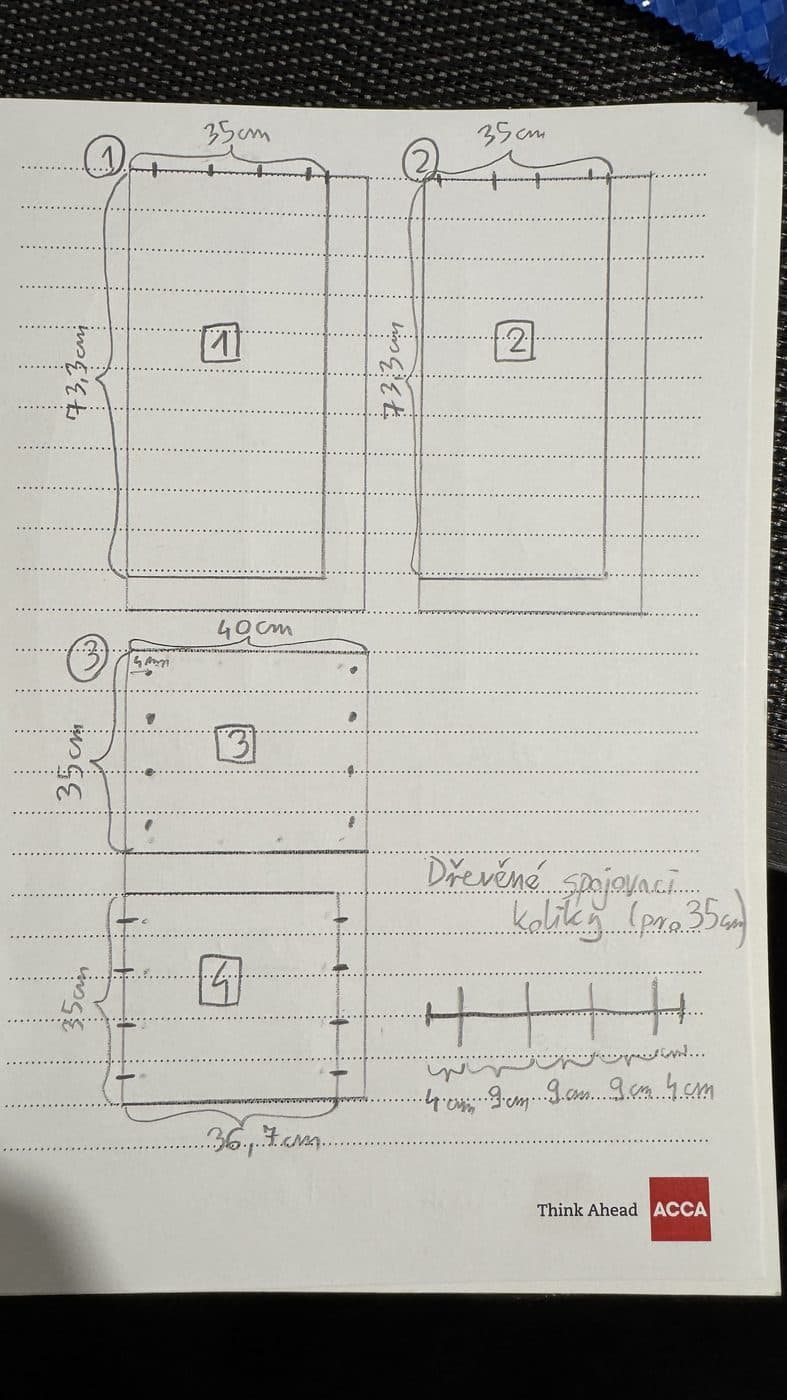 35cm 35cm
① ②
73,3cm 1 73,3cm 2
40cm
③
4mm
35cm 3
Dřevěné spojovací
kolíky (pro 35cm)
35cm 4
4cm 9cm 9cm 9cm 4cm
36,7cm
Think Ahead ACCA